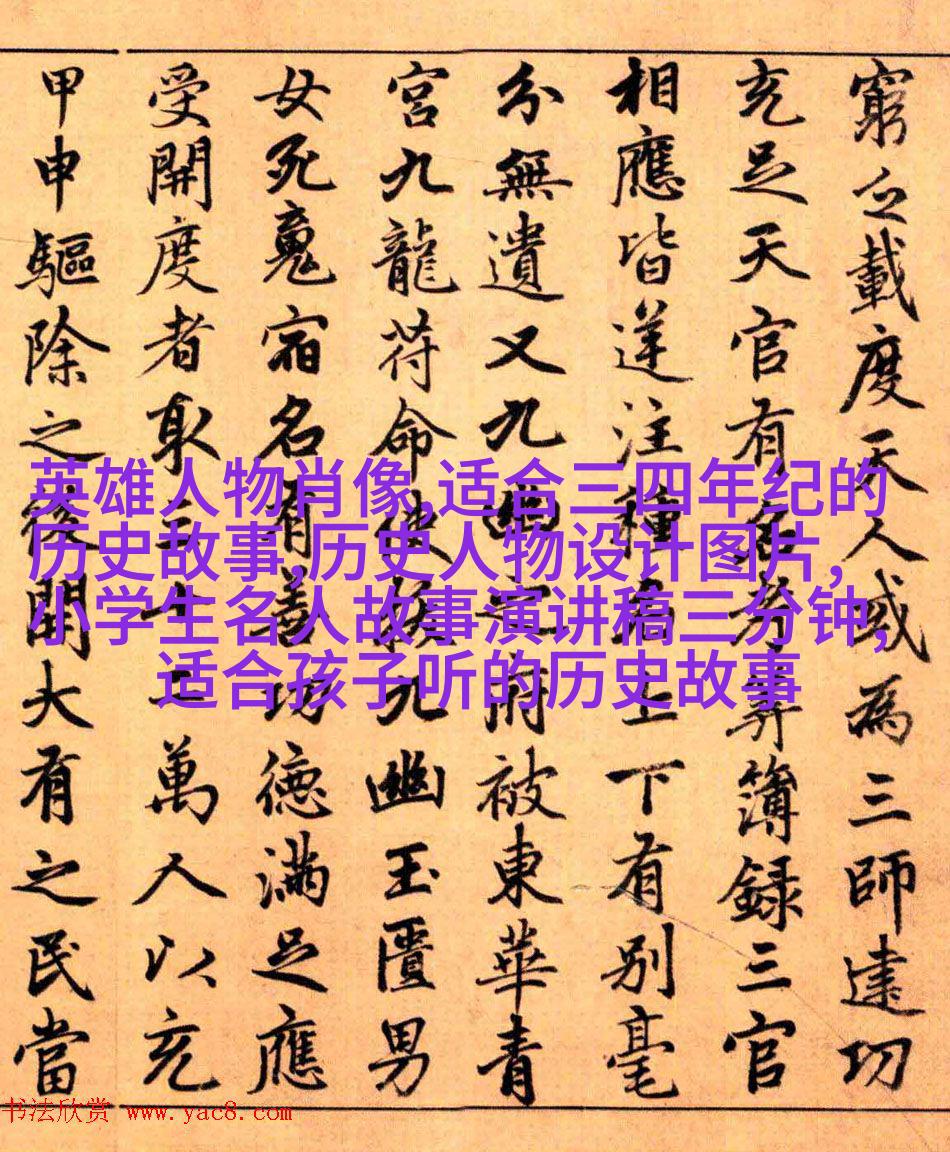 窮之載度天人或為三師達功
充足天官有考筭簿錄三官
相應皆逆注種名上下有別毫
分無遺又九曲被東華青
宮九龍符命拔九幽玉匱男
女死魂宿名有善功德滿足應
受開度者取三千二萬人以充
甲申驅除之後開大有之民當
英雄人物肖像,适合三四年纪的
历史故事,历史人物设计图片,
小学生名人故事演讲稿三分钟,
适合孩子听的历史故事
书法欣赏 www.yac8.com